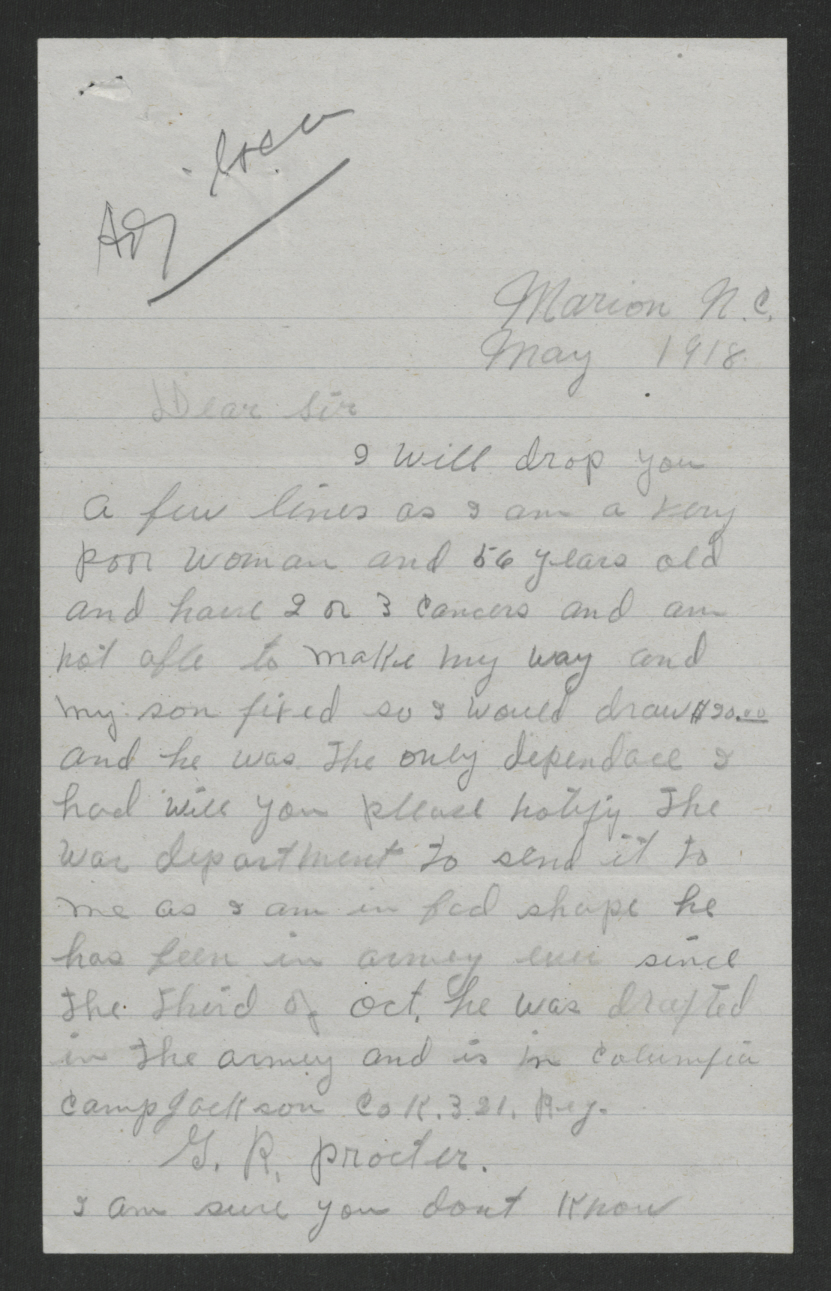 Adj. Gen
Marion N.C.
May 1918.
Dear Sir
I will drop you
a few lines as I am a very
poor woman and 56 years old
and have 2 or 3 cancers and am
not able to make my way and
my son fixed so I would draw $20.00
and he was the only dependace I
had will you please notify the
War department to send it to
me as I am in bad shape he
has been in armey ever since
the third of oct. he was drafted
in the armey and is in columbia
camp Jackson Co K. 321. Reg.
G. R. Procter.
I am sure you dont know